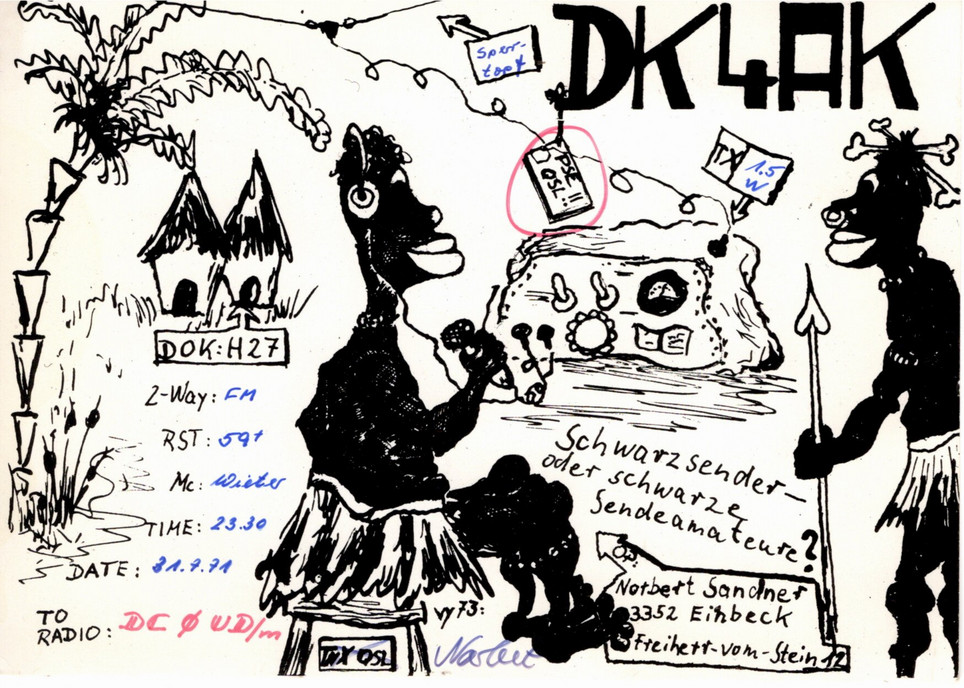 DK4AK
Sper-
topf
PSE
QSL!!
TX 1.5
W
DOK:H27
2-Way: FM
RST: 59+
Mc:
TIME: 23.30
DATE: 31.7.71
TO
RADIO: DC Ø UD/m
Schwarzsender-
oder schwarze
Sendeamateure?
Norbert Sandner
3352 Einbeck
Freiherr-vom-Stein 12
vy 73:
Norbert
TNX QSL